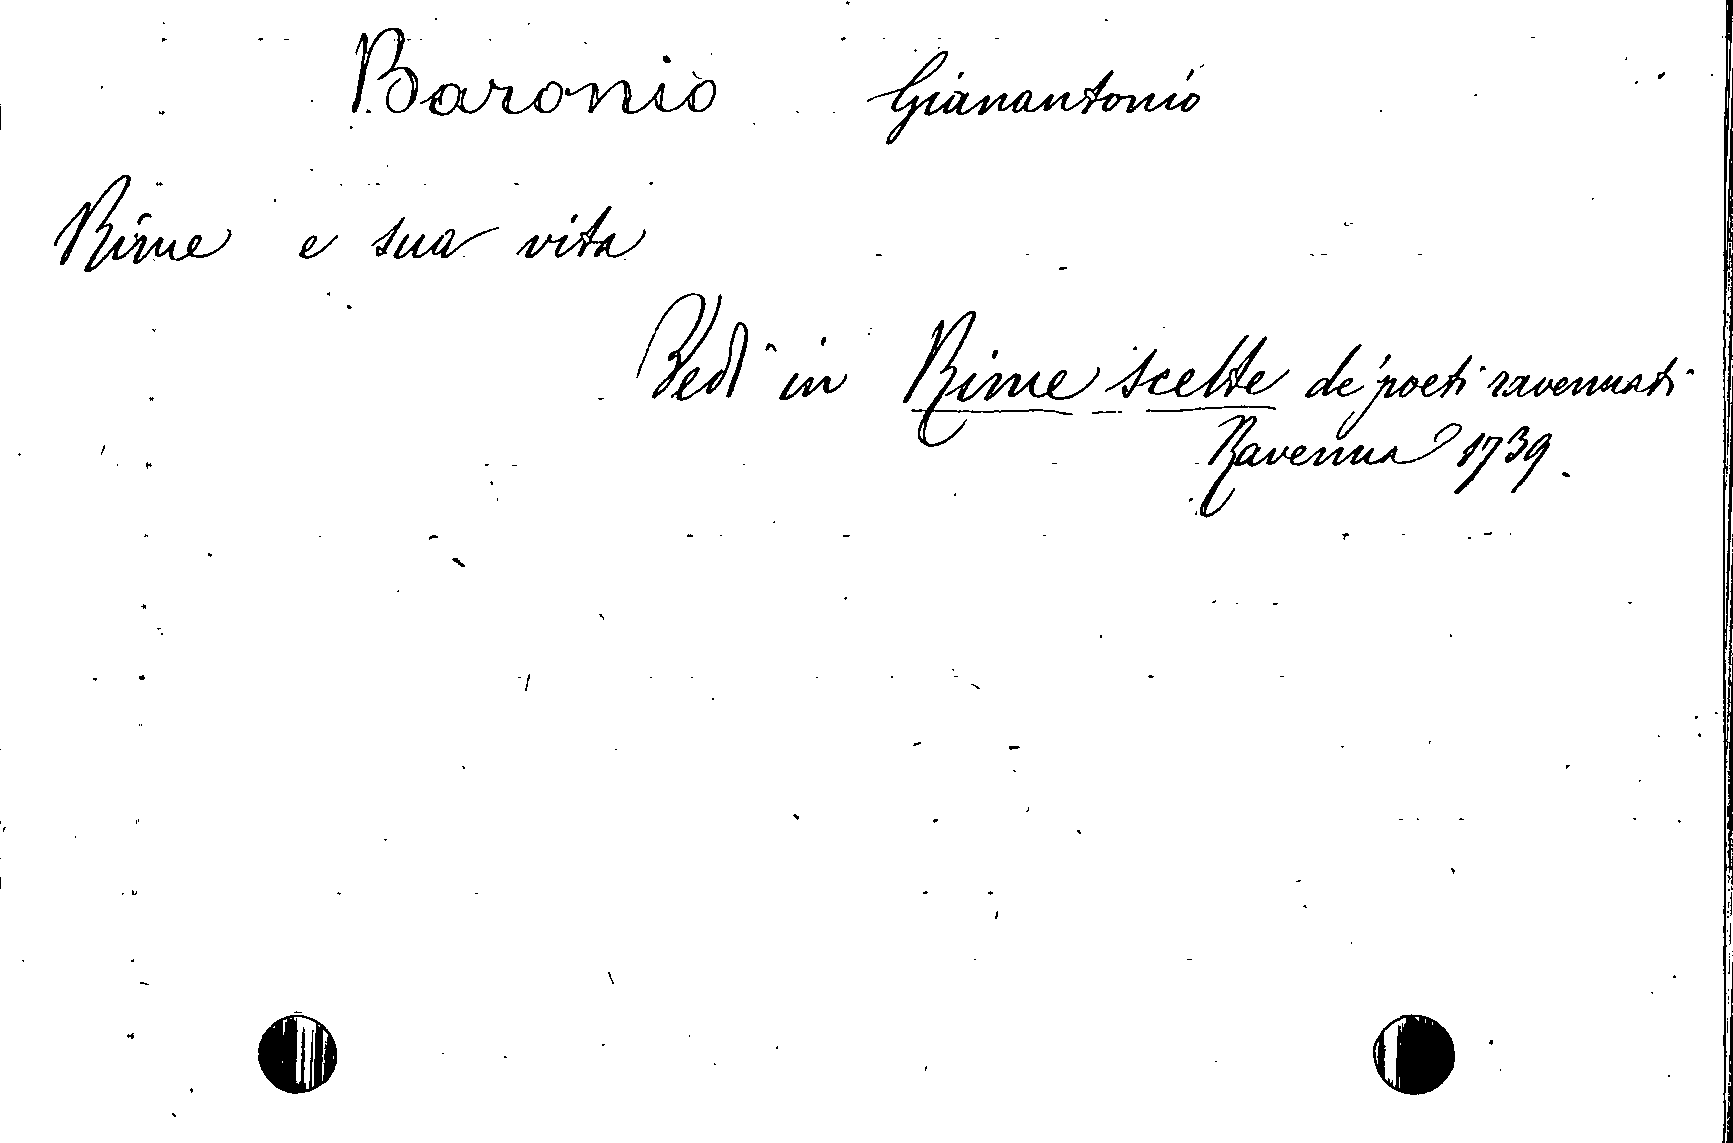 Baronio Gianantonio
Rime e sua vita
Vedi in Rime scelte de' poeti ravennati
Ravenna 1739.